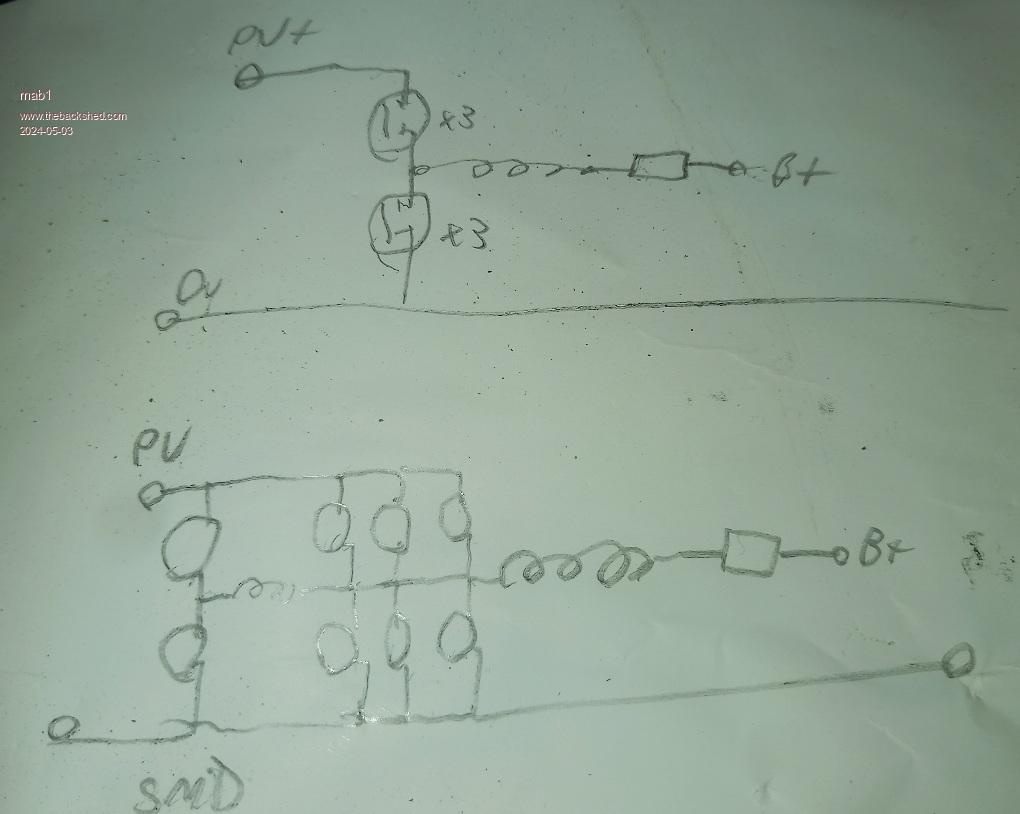 PV+
mab1
www.thebackshed.com
2024-05-03
x3
B+
x3
0v
PV
B+
SMD